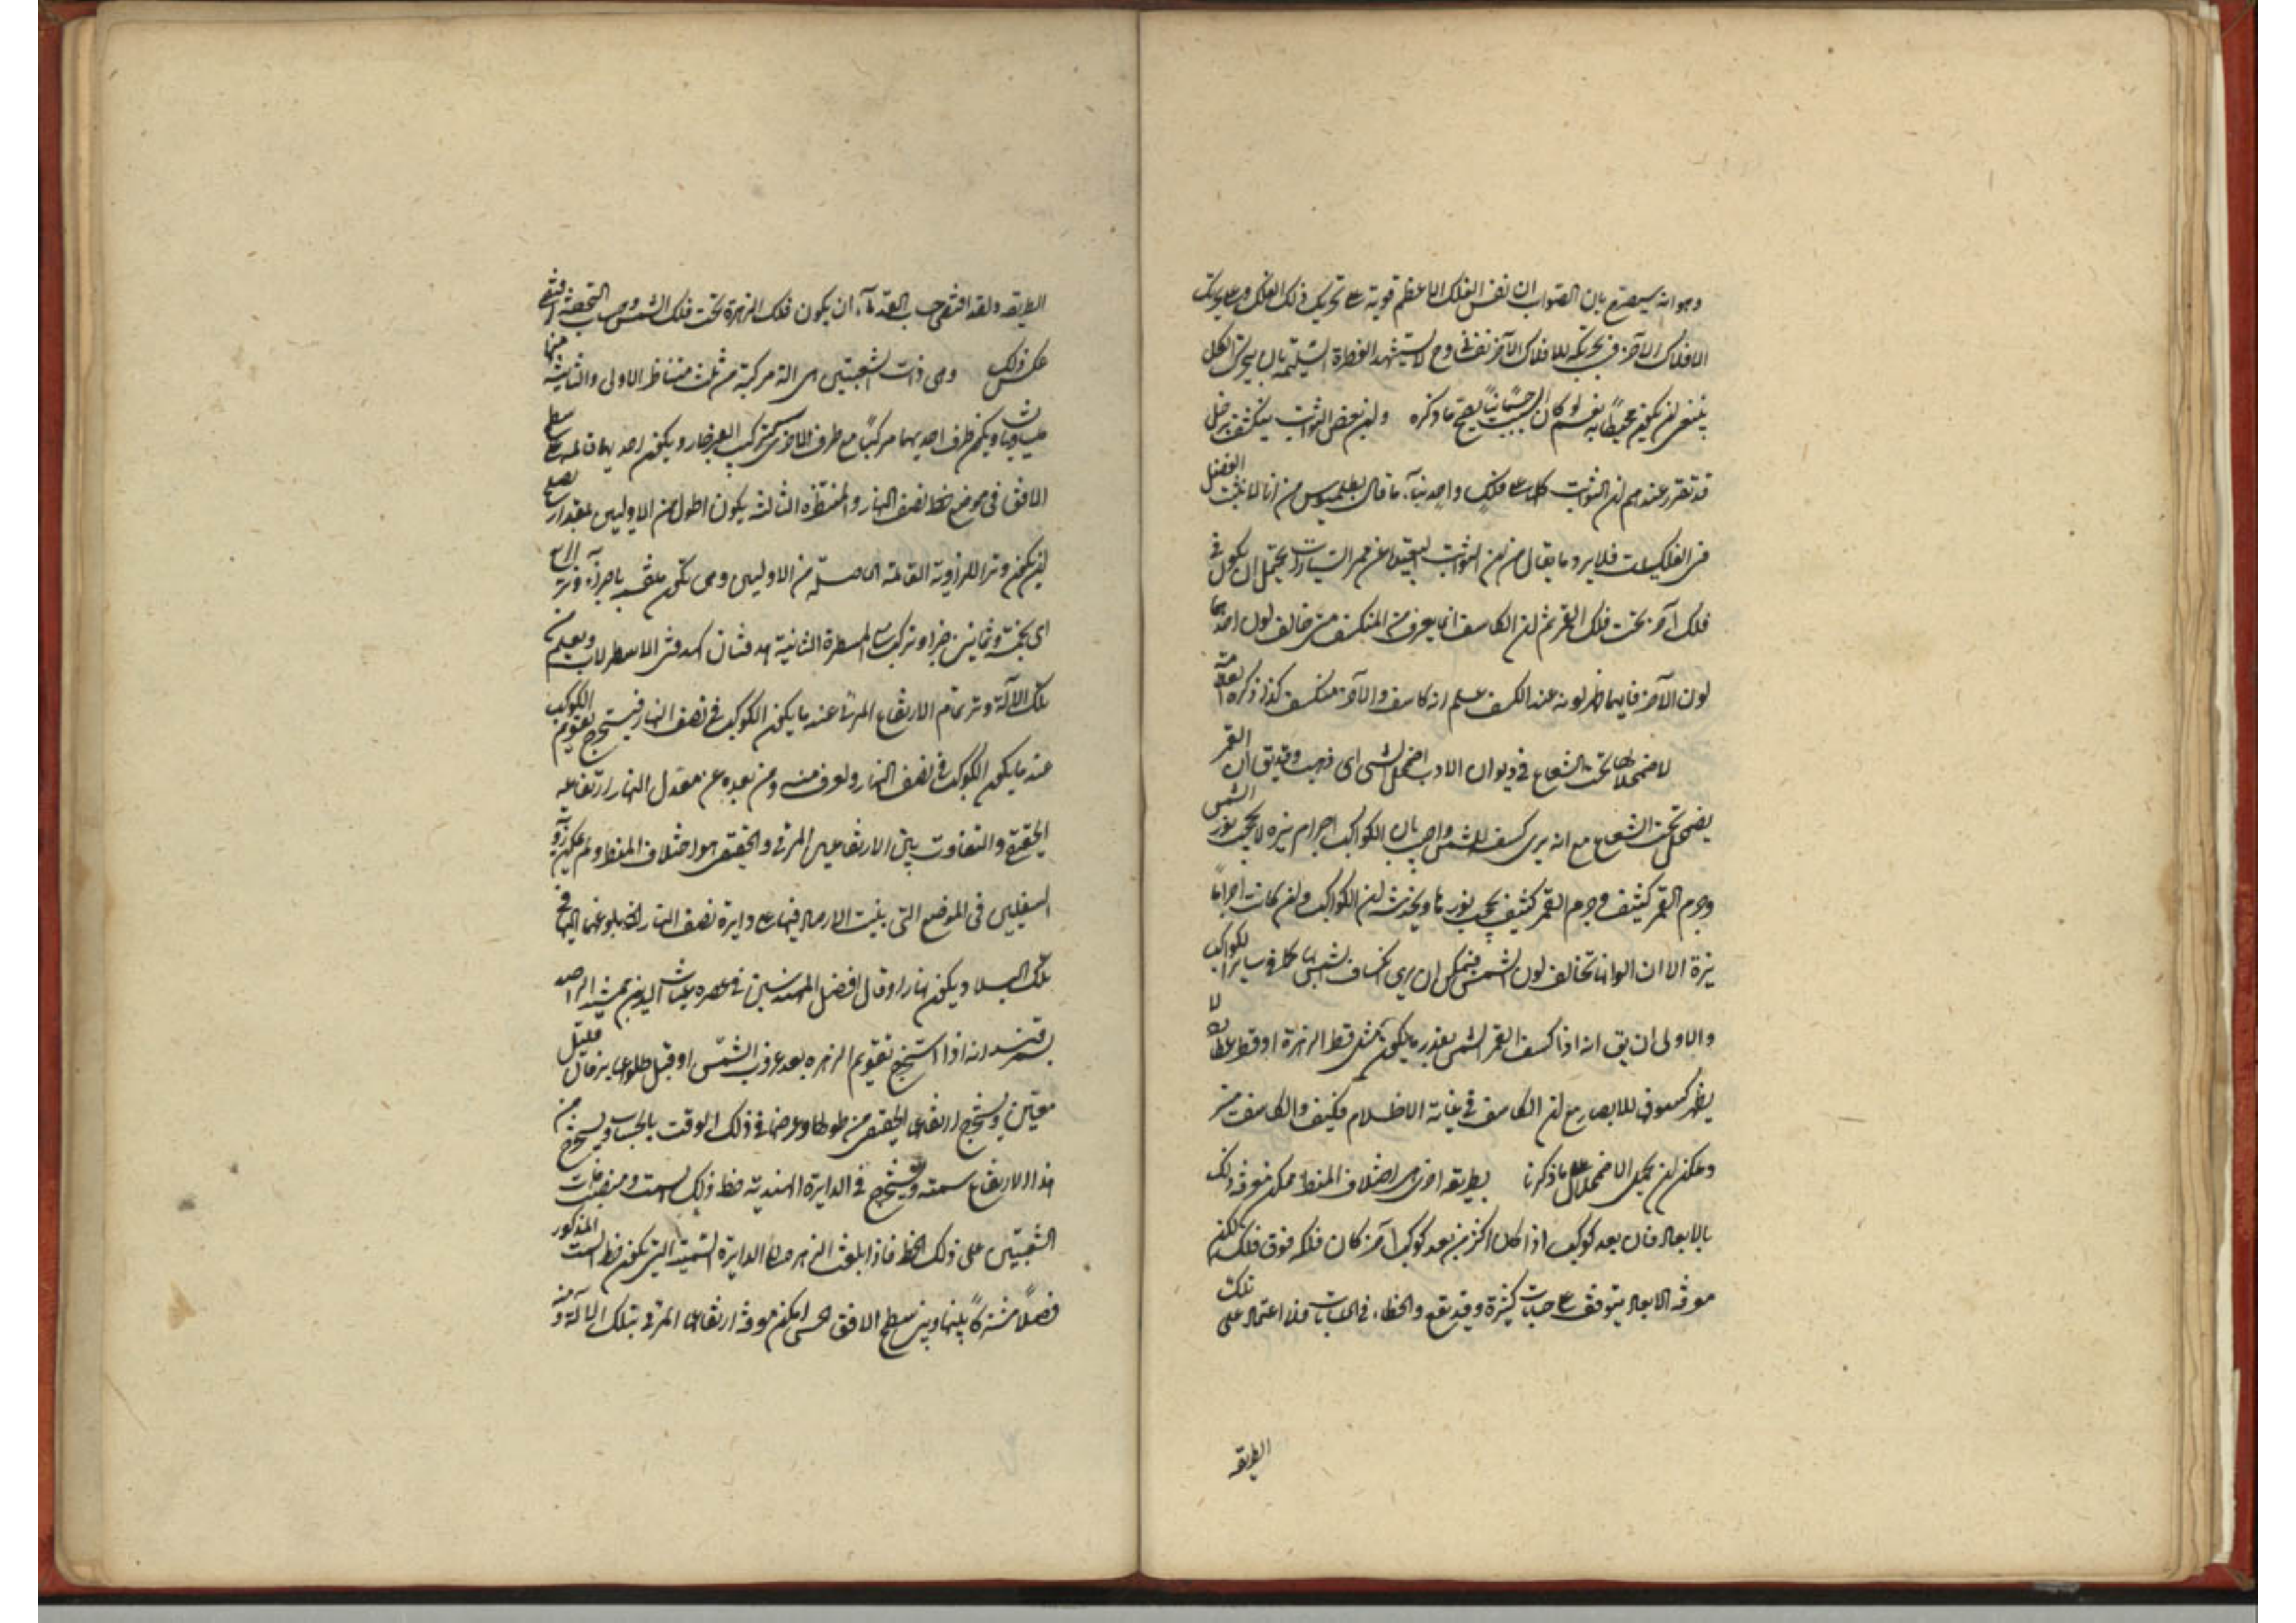 وهو انه سيصرح بان الصواب ان نفس الفلك الاعظم قوية على تحريك ذلك الفلك وعلى تحريك
الافلاك الاخر فى تحريكه للافلاك الاخر نفسانى وح لا يستشهد الفطرة السليمة بان محرك الكل
ينبغى ان يكون محيطا به نعم لو كان جسمانيا يصح ما ذكره ولان بعض الثوابت ينكشف زحل
قد تقرر عندهم ان الثوابت كلها على فلك واحد بناء ما قال بطلميوس من انا لا نثبت الفضل
فى الفلكيات فلا يرد ما يقال من ان الثوابت البعيدة عن ممر السيارات يحتمل ان يكون فى
فلك آخر تحت فلك القمر ثم ان الكاسف انما يعرف من المنكسف من خالف لون احدهما
لون الاخر فايهما ظهر لونه عند الكسف علم انه كاسف والاخر منكسف كذا ذكره العلامة
لاضمحلالها تحت الشعاع فى ديوان الادب اضمحل الشى اى ذهب وقد يق ان القمر
يضمحل تحت الشعاع مع انه يرى كسفه للشمس واجيب بان الكواكب اجرام نيرة لا يحجب نور الشمس
وجرم القمر كثيف وجرم القمر كثيف يحجب نورها ويخدشه ان الكواكب وان كانت اجراما
نيرة الا ان الوانها تخالف لون الشمس فيمكن ان يرى كسف الشمس بها كما فى ساير الكواكب
والاولى ان يق انه اذا كسف القمر الشمس بقدر ما يكون مثل قطر الزهرة او قطر عطارد لا
يظهر كسوف للابصار مع ان الكاسف فى غاية الاظلام فكيف والكاسف
ويمكن ان يحمل الاضمحلال على ما ذكرنا بطريقة اخرى هى اختلاف المنظر ممكن معرفة ذلك
بالابعاد فان بعد كوكب اذا كان اكثر من بعد كوكب آخر كان فلكه فوق فلكه لكن
معرفة الابعاد يتوقف على حسابات كثيرة وقد يقع والخطاء فى الحسابات فلا اعتماد على تلك
الطريقة
الطريقة ولقد اقتضى حساب القدماء ان يكون فلك الزهرة تحت فلك الشمس وحساب التحفة اقتضى
عكس ذلك وهى ذات الشعبتين هى آلة مركبة من ثلث مساطر الاولى والثانية منها
متساويتان ويكون طرف احديهما مركبا مع طرف الاخرى كتركيب الفرجار ويكون احديهما قائمة على سطح
الافق فى موضع خط نصف النهار والمسطرة الثالثة يكون اطول من الاوليين بمقدار يصلح
لان يكون وترا للزاوية القائمة الحاصلة من الاوليين وهى تكون منقسمة باجزاء وتر
اى بخمسة وثمانين جزءا وتركب على المسطرة الثانية هدفتان كهدفتى الاسطرلاب ويعلم من
تلك الآلة وتر تمام الارتفاع المرئى عند ما يكون الكوكب فى نصف النهار فيستخرج تقويم الكوكب
عند ما يكون الكوكب فى نصف النهار ويعرف منه ومن بعده عن معدل النهار ارتفاعه
الحقيقى والتفاوت بين الارتفاعين المرئى والحقيقى هو اختلاف المنظر ولم يمكن رؤية
السفليين فى الموضع التى بنيت الارصاد فيها على دايرة نصف النهار لان بلوغهما اليها فى
تلك البلاد يكون نهارا وقال افضل المهندسين فى عصره غياث الدين جمشيد الراصد
بسمرقند انه اذا استخرج تقويم الزهرة بعد غروب الشمس او قبل طلوعها بزمان قليل
معين ويستخرج ارتفاعها الحقيقى من طولها وعرضها فى ذلك الوقت بالحساب ويستخرج من
هذا الارتفاع سمته ويستخرج فى الدايرة الهندية خط ذلك السمت ومنصب ذات
الشعبتين على ذلك الخط فاذا بلغت الزهرة الى الدايرة السمتية التى يكون خط السمت المذكور
فصلا مشتركا بينها وبين سطح الافق الحسى امكن معرفة ارتفاعها المرئى بتلك الآلة ومنه